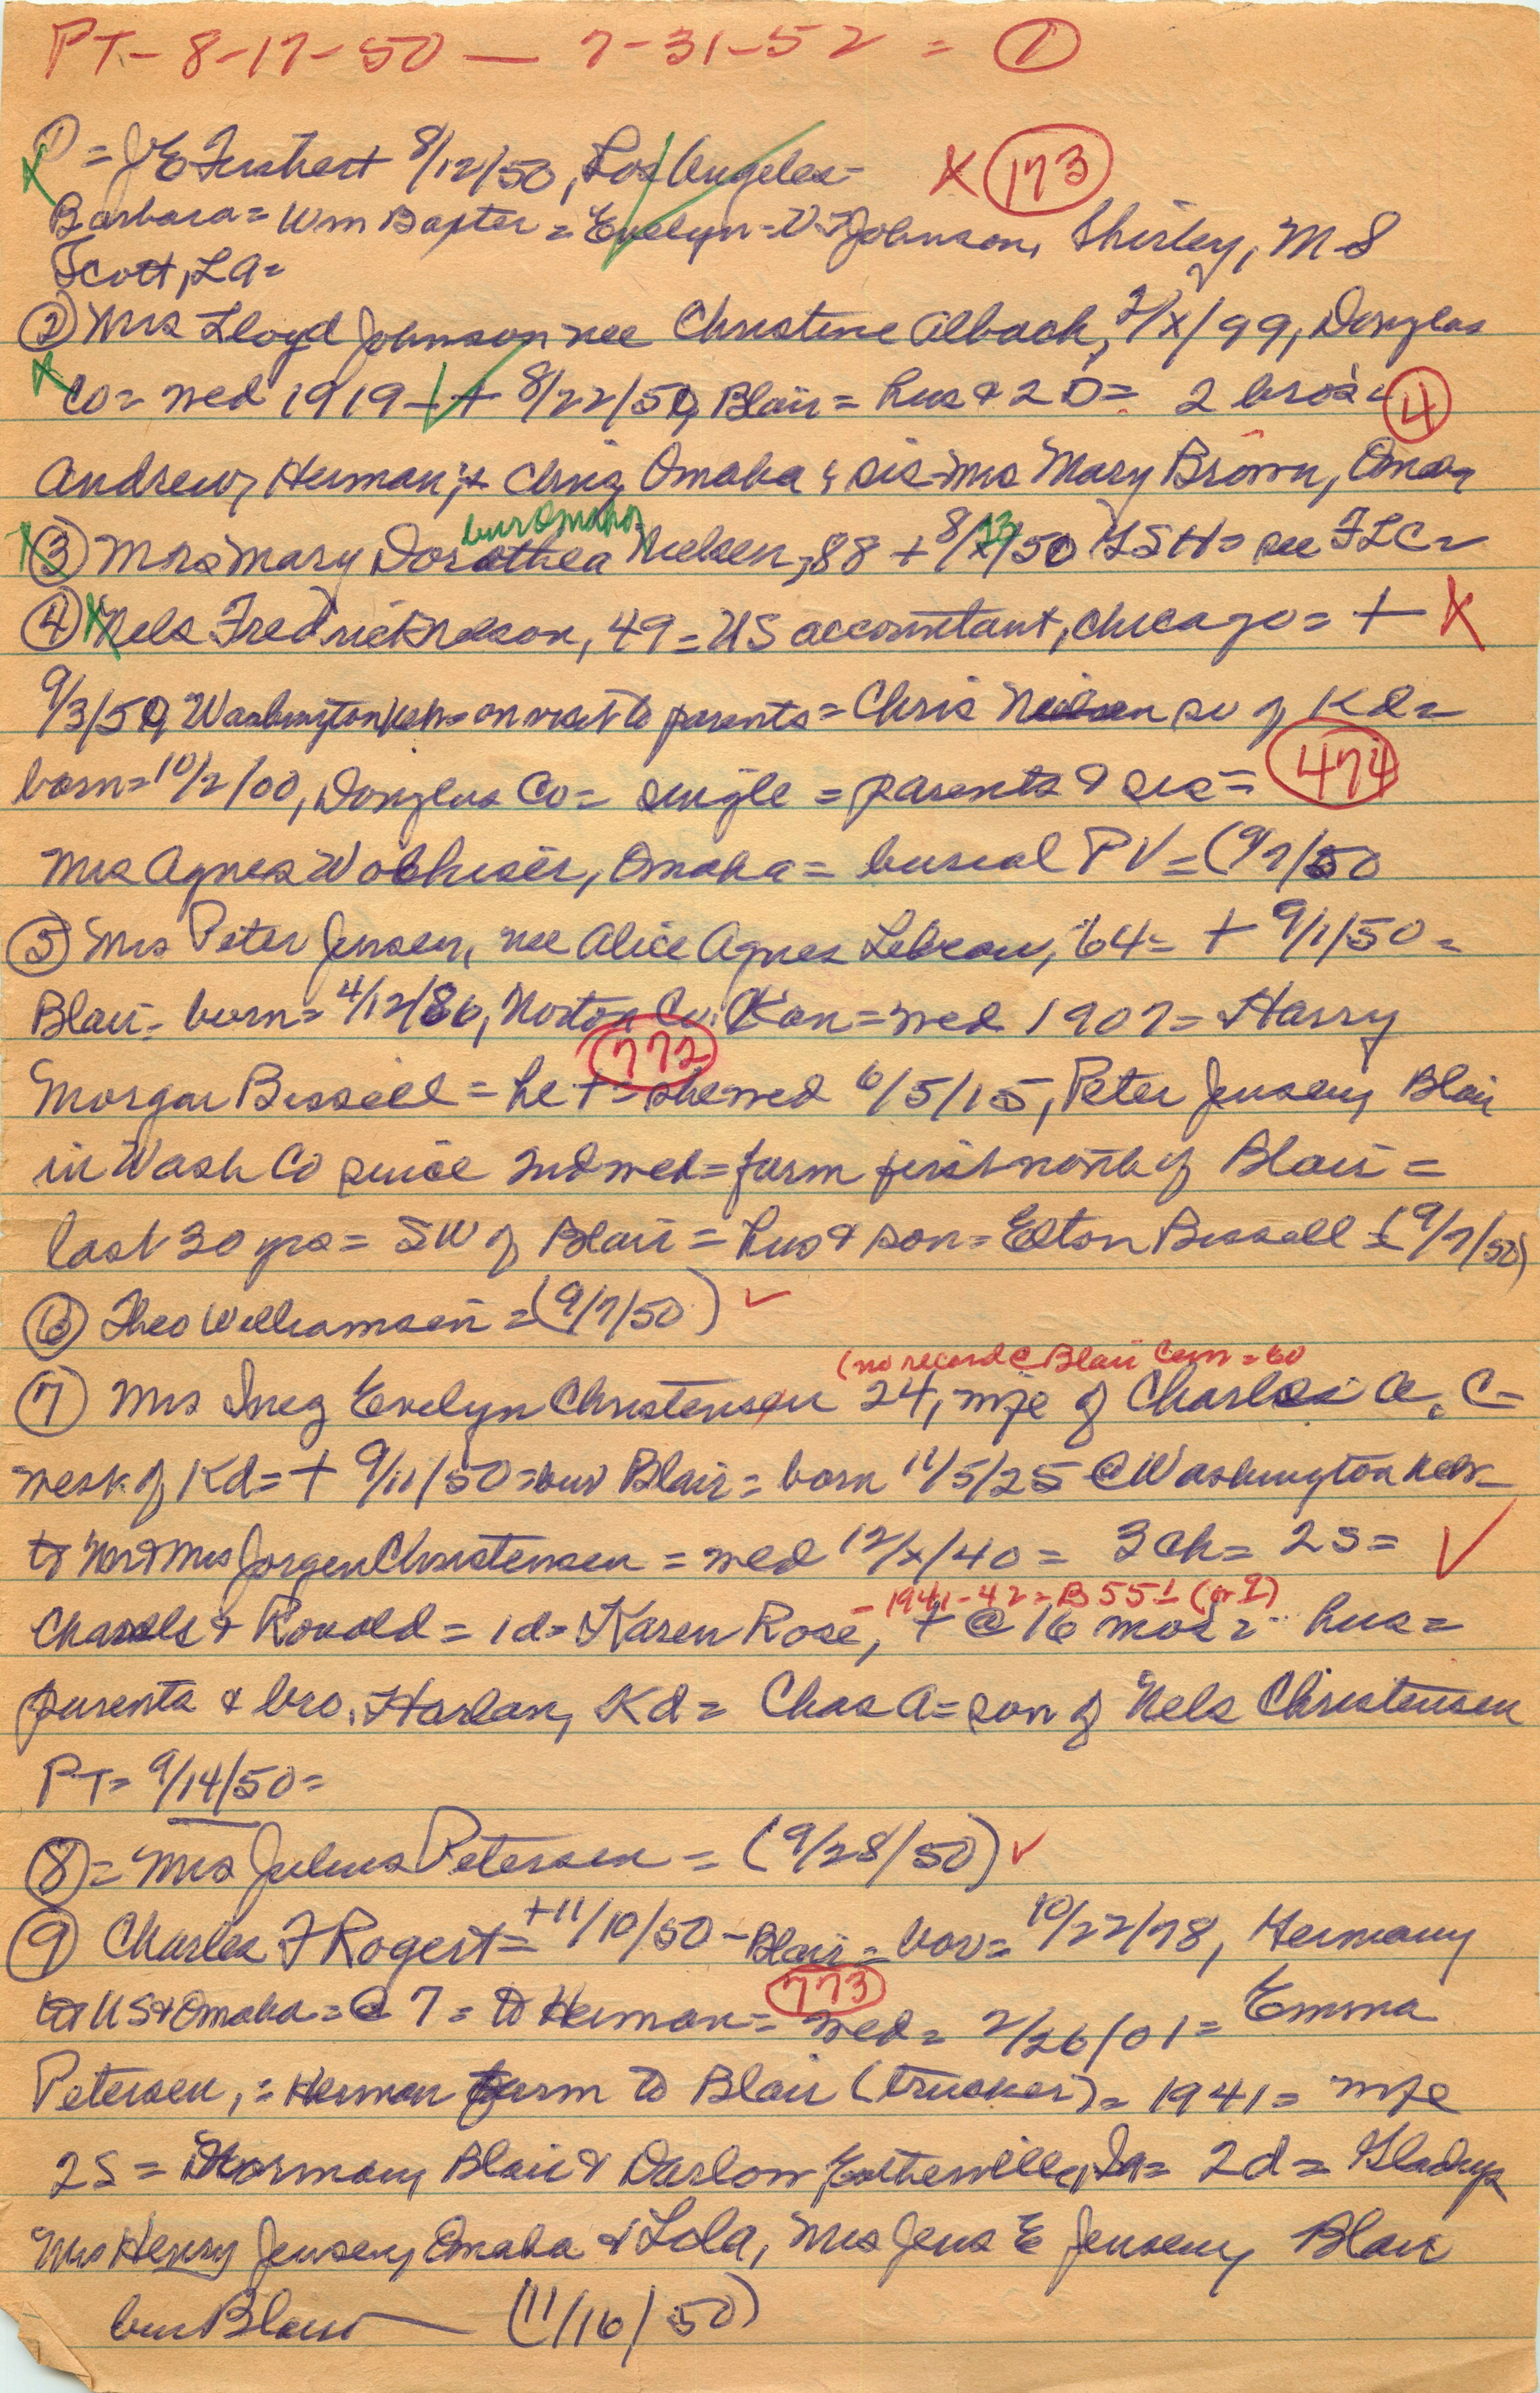 PT - 8-17-50 — 7-31-52 = ①
① = J E 8/12/50, Los Angeles = X 173
Barbara = Wm Baxter = Evelyn = V Johnson, Shirley, M S
Scott, LA =
② Mrs Lloyd Johnson nee Christine Alback, 2/x/99, Douglas
Co = wed 1919 - + 8/22/50, Blair = hus & 2 D = 2 bros = 4
Andrew, Herman, & Chris, Omaha & sis = Mrs Mary Brown, Omaha
bur Omaha
③ Mrs Mary Dorothea Nielsen, 88 + 8/23/50 = see FLC =
④ Nels Fredrick Nelson, 49 = US accountant, Chicago = + X
9/3/50, Washington Neb = on visit to parents = Chris Nielsen sw of Kd =
born = 10/2/00, Douglas Co = single = parents & sis = 474
Mrs Agnes, Omaha = burial PV = (9/7/50
⑤ Mrs Peter Jensen, nee Alice Agnes, 64 = + 9/1/50 =
Blair = born = 4/12/86, Norton Co. Kan = wed 1907 = Harry
772
Morgan Bissell = he + = she wed 6/5/15, Peter Jensen, Blair
in Wash Co since 2nd wed = farm first north of Blair =
last 30 yrs = SW of Blair = hus & son = Elton Bissell = (9/7/50)
⑥ Theo Williamsen = (9/7/50) ✓
(no record @ Blair Cem = 60
⑦ Mrs Inez Evelyn Christensen 24, wife of Charles A. C =
west of Kd = + 9/11/50 = bur Blair = born 11/5/25 @ Washington Nebr =
to Mr & Mrs Jorgen Christensen = wed 12/x/40 = 3 ch = 2 S = ✓
- 1941-42 = B 55 ± (or I)
Charles & Ronald = 1 d = Karen Rose, + @ 16 mos = hus =
parents & bro, Harlan, Kd = Chas A = son of Nels Christensen
PT = 9/14/50 =
⑧ = Mrs Julius Petersen = (9/28/50) ✓
⑨ Charles F Rogert = + 11/10/50 - Blair = bor = 10/22/78, Germany
773
to US & Omaha = @ 7 = to Herman = wed = 2/26/01 = Emma
Petersen, = Herman farm to Blair (trucker) = 1941 = wife
2 S = Norman, Blair & Darlow, Estherville, Ia = 2 d = Gladys
Mrs Henry Jensen, Omaha & Lola, Mrs Jens E Jensen, Blair
bur Blair — (11/16/50)